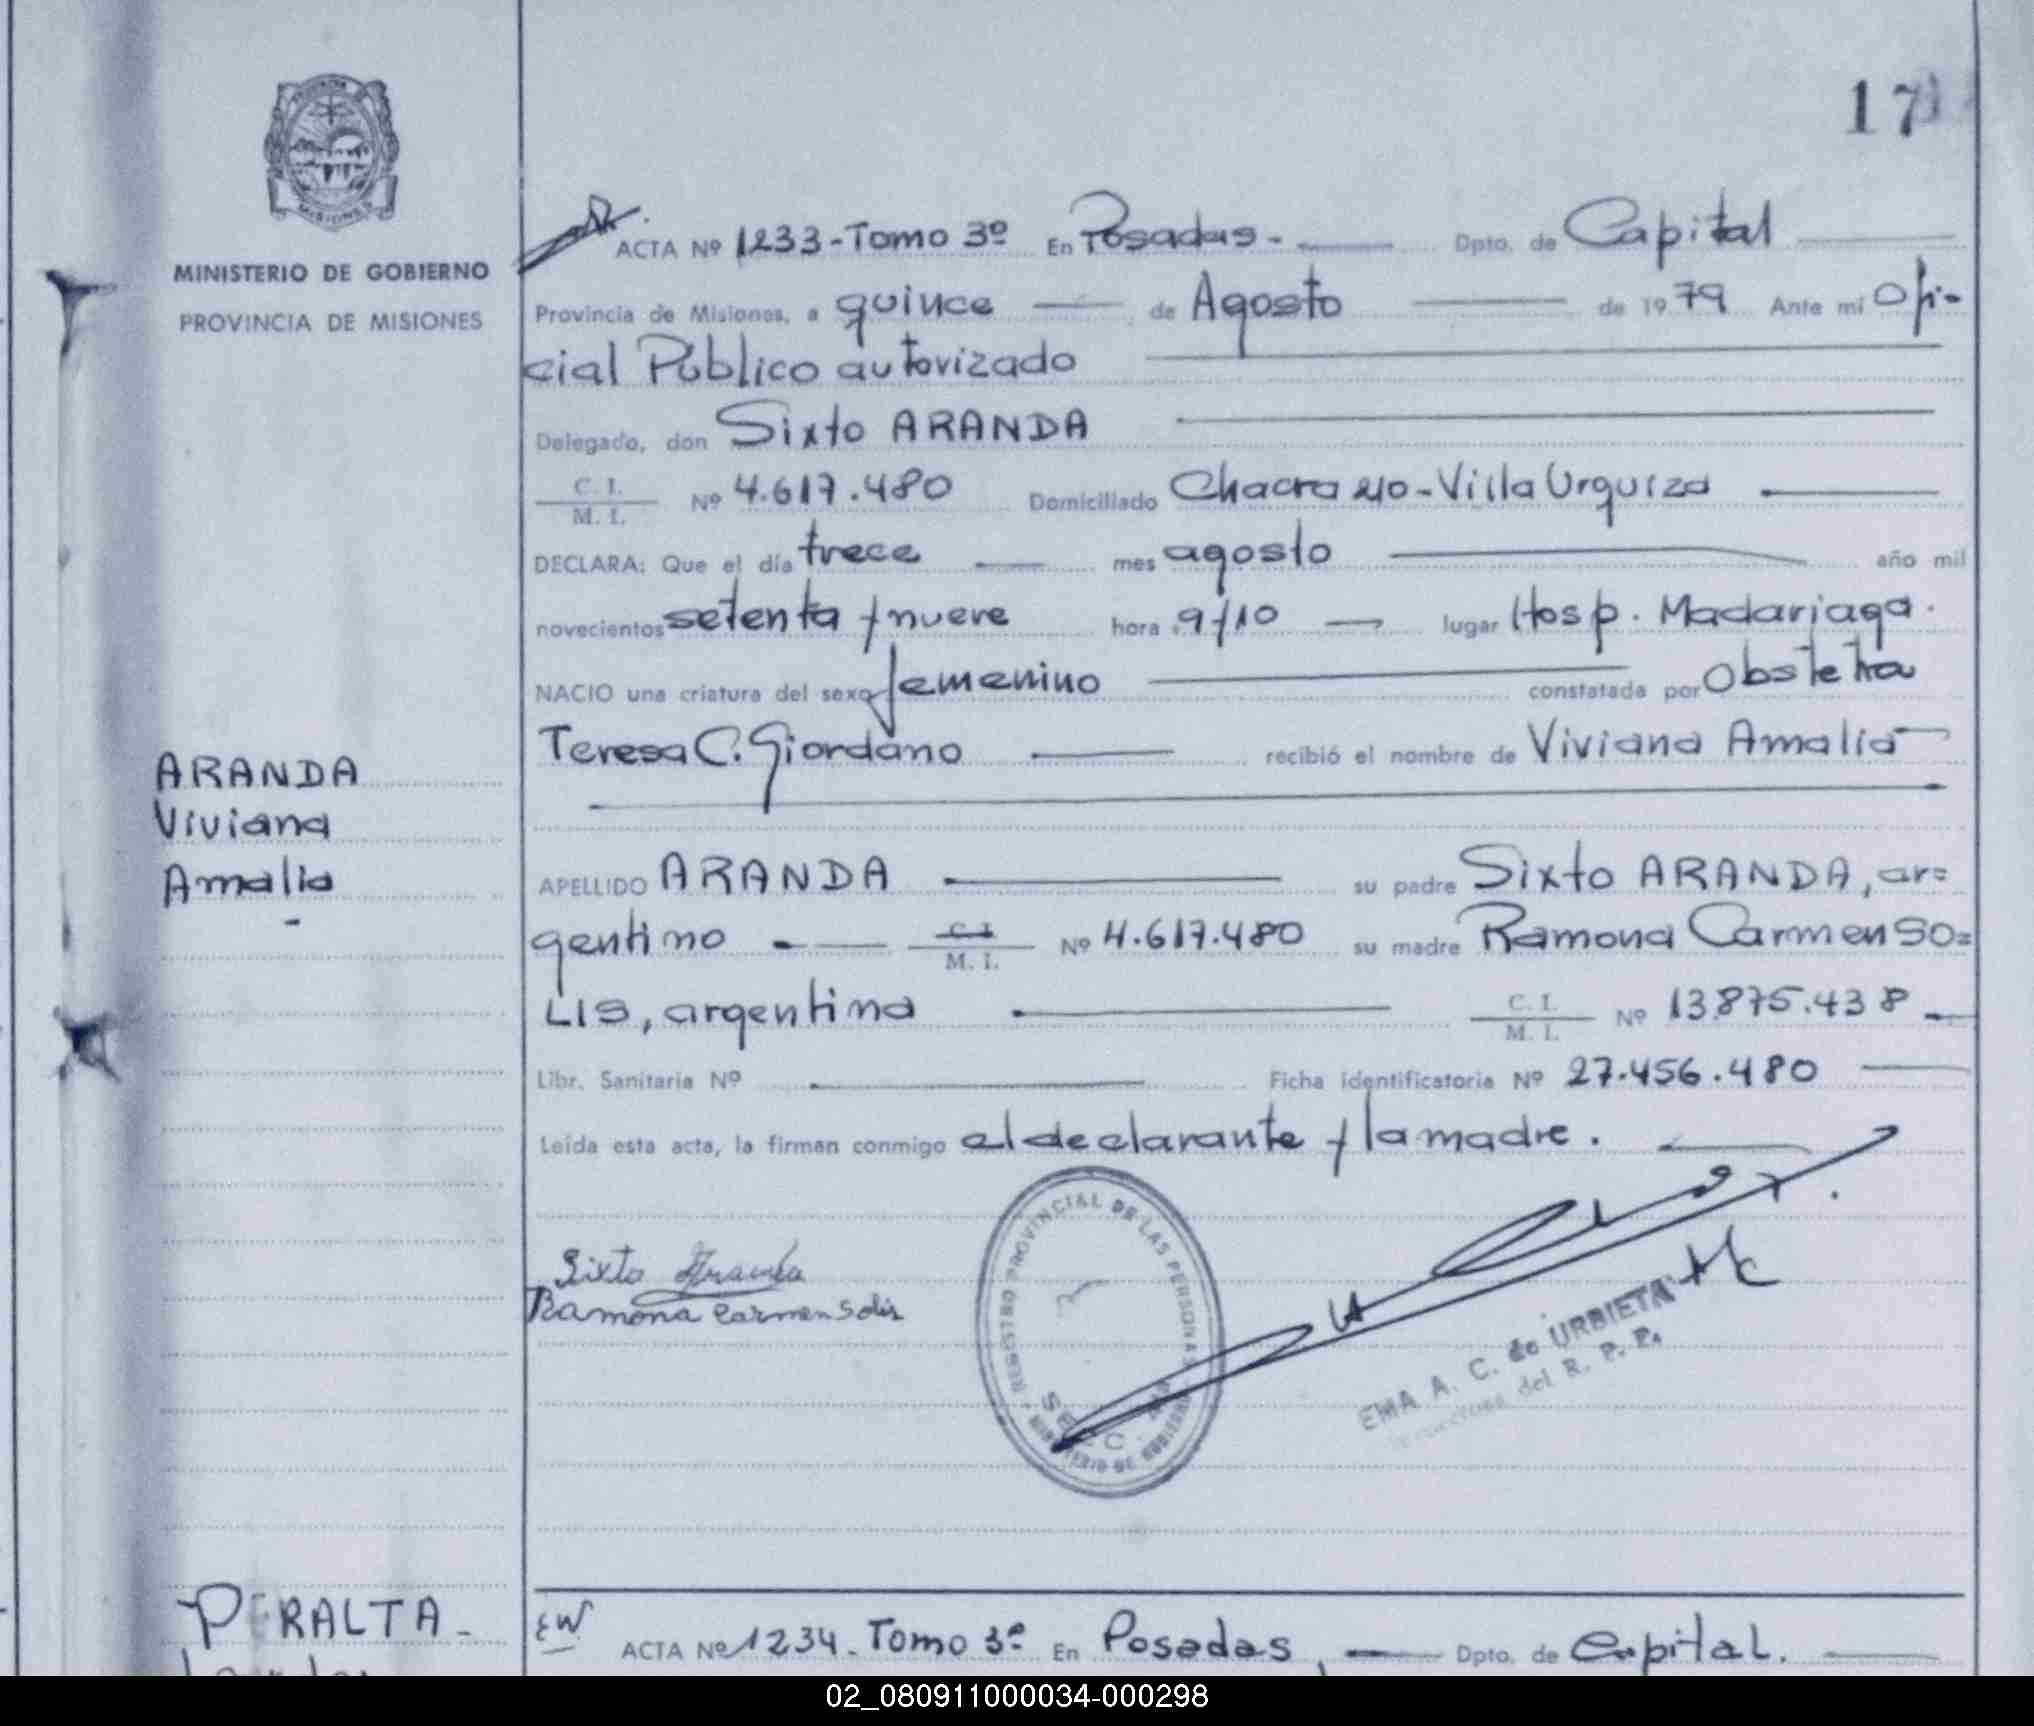 17
MINISTERIO DE GOBIERNO
PROVINCIA DE MISIONES
MISIONES
ACTA Nº 1233-Tomo 3º En Posadas- Dpto. de Capital
Provincia de Misiones, a quince de Agosto de 1979 Ante mí Ofi-
cial Público autorizado
Delegado, don Sixto ARANDA
C. I. / M. I. Nº 4.617.480 Domiciliado Chacra 210-Villa Urquiza
DECLARA: Que el día trece mes agosto año mil
novecientos setenta y nueve hora 9/10 lugar Hosp. Madariaga.
NACIO una criatura del sexo femenino constatada por Obstetra
Teresa C. Giordano recibió el nombre de Viviana Amalia
ARANDA
Viviana
Amalia
-
APELLIDO ARANDA su padre Sixto ARANDA, ar=
gentino C. I. / M. I. Nº 4.617.480 su madre Ramona Carmen SO=
LIS, argentina C. I. / M. I. Nº 13.875.438
Libr. Sanitaria Nº Ficha identificatoria Nº 27.456.480
Leída esta acta, la firman conmigo el declarante y la madre.
Sixto Aranda
Ramona Carmen Solis
REGISTRO PROVINCIAL DE LAS PERSONAS
MINISTERIO DE GOBIERNO
EMA A. C. de URBIETA
del R. P. P.
PERALTA-
ACTA Nº 1234-Tomo 3º En Posadas, Dpto. de Capital.
02_080911000034-000298